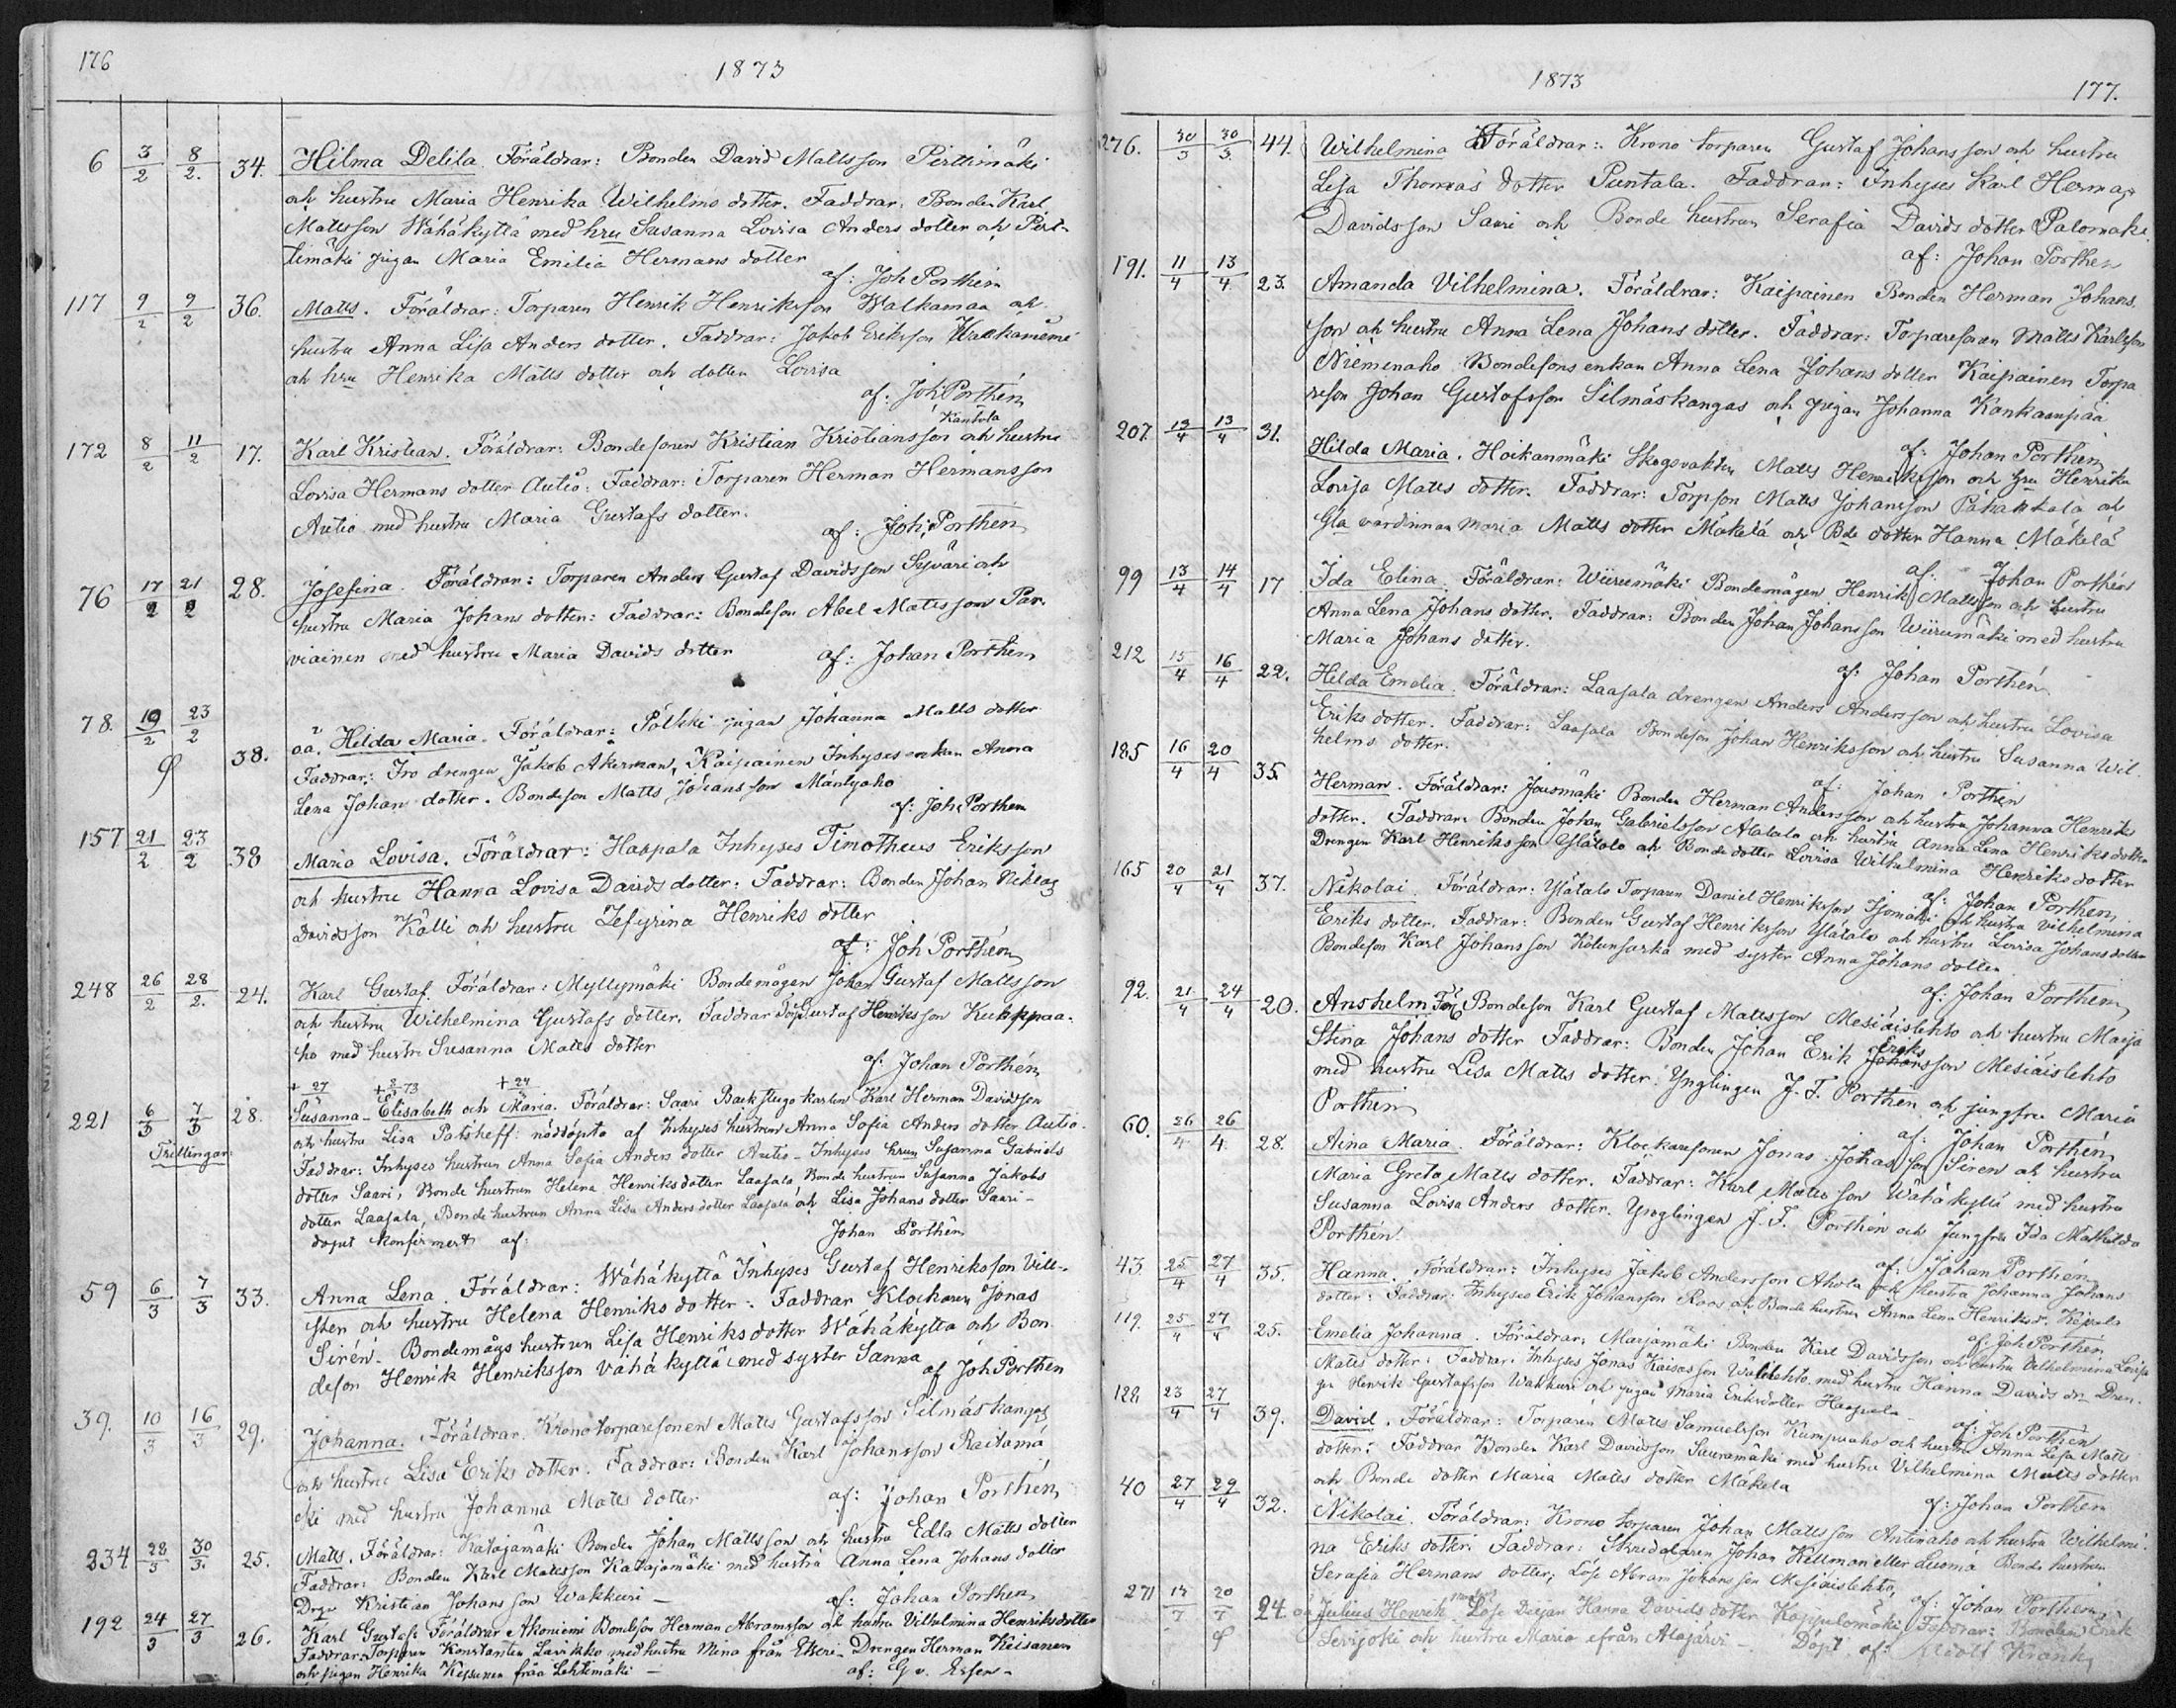 176
1873
6 3/2 8/2. 34. Hilma Delila. Föräldrar: Bonden David Mattsson Perttimäki
och hustru Maria Henrika Wilhelms dotter. Faddrar, Bonden Karl
Mattsson Wähäkyttä med hru Susanna Lovisa Anders dotter och Pert-
timäki pigan Maria Emilia Hermans dotter
af: Joh Porthén
117 9/2 9/2 36. Matts. Föräldrar: Torparen Henrik Henriksson Walkamaa och
hustru Anna Lisa Anders dotter. Faddrar: Jakob Eriksson
och hru Henrika Matts dotter och dotter Lovisa
af: Joh Porthén
Kantola
172 8/2 11/2 17. Karl Kristian. Föräldrar: Bondesonen Kristian Kristiansson och hustru
Lovisa Hermans dotter Autio. Faddrar: Torparen Herman Hermansson
Autio med hustru Maria Gustafs dotter.
af: Joh: Porthén
76 17/2 21/2 28. Josefina. Föräldrar: Torparen Anders Gustaf Davidsson Syväri och
hustru Maria Johans dotter: Faddrar: Bondeson Abel Mattsson Par-
viainen med hustru Maria Davids dotter
af: Johan Porthén
78. 19/2 23/2 38. oä. Hilda Maria. Föräldrar: Pölkki pigan Johanna Matts dotter
Faddrar: Iro drengen Jakob Åkerman, Kaipainen Inhyses enkan Anna
Lena Johans dotter. Bondeson Matts Johansson Mäntyaho
af: Joh Porthen
157 21/2 23/2 38 Maria Lovisa. Föräldrar: Haapala Inhyses Timotheus Eriksson
och hustru Hanna Lovisa Davids dotter: Faddrar: Bonden Johan Niklas
Davidsson Källi och hustru Zefyrina Henriks dotter
af: Joh Porthén
248 26/2 28/2. 24. Karl Gustaf. Föräldrar: Myllymäki Bondemågen Johan Gustaf Mattsson
och hustru Wilhelmina Gustafs dotter. Faddrar Torp Gustaf Henriksson Kukkpaa-
ho med hustru Susanna Matts dotter
af: Johan Porthén
221 6/3 7/3 28. Susanna - Elisabeth och Maria. Föräldrar: Saari Backstugo karlen Karl Herman Davidsson
Trillingar
och hustru Lisa Potsheff: nöddöpta af Inhyses hustrun Anna Sofia Anders dotter Autio.
Faddrar: Inhyses hustrun Anna Sofia Anders dotter Autio - Inhyses hrun Susanna Gabriels
dotter Saari, Bonde hustrun Helena Henriksdotter Laasala Bonde hustrun Susanna Jakobs
dotter Laasala, Bonde hustrun Anna Lisa Anders dotter Laasala och Lisa Johans dotter Saari -
dopet konfirmert af: Johan Porthén
59 6/3 7/3 33. Anna Lena. Föräldrar: Wähäkyttä Inhyses Gustaf Henriksson Vill-
sten och hustru Helena Henriks dotter: Faddrar Klockaren Jonas
Sirén - Bondemågs hustrun Lisa Henriks dotter Wähäkyttä och Bon-
deson Henrik Henriksson Vähäkyttä med syster Sanna
af Joh Porthen
39. 10/3 16/3 29. Johanna. Föräldrar. Kronotorparesonen Matts Gustafsson Silmäskangas
och hustru Lisa Eriks dotter. Faddrar: Bonden Karl Johansson Raitamä-
ki med hustru Johanna Matts dotter
af: Johan Porthén
234 28/3 30/3. 25. Matts. Föräldrar: Katajamäki Bonden Johan Mattsson och hustru Edla Matts dotter
Faddrar: Bonden Karl Mattsson Katajamäki med hustru Anna Lena Johans dotter
Drge Kristian Johansson Wakkuri -
af: Johan Porthén
192 24/3 27/3 26. Karl Gustaf. Föräldrar Akoniemi Bondeson Herman Abramsson och hustru Vilhelmina Henriksdotter
Faddrar: Torparen Konstantin Lavikko med hustru Mina från Etseri - Drengen Herman Kiisanen
och pigan Henrika från Lehtimäki -
af: G v. Essen -
1873
177.
276. 30/3 30/3. 44. Wilhelmina Föräldrar: Krono torparen Gustaf Johansson och hustru
Lisa Thomas dotter Puntala. Faddrar: Inhyses Karl Herman
Davidsson Saari och Bonde hustrun Serafia Davids dotter Palomäki
af: Johan Porthen
191. 11/4 13/4 23. Amanda Vilhelmina. Föräldrar: Kaipainen Bonden Herman Johans-
son och hustru Anna Lena Johans dotter. Faddrar: Torparesonen Matts Karlsson
Niemenaho Bondesons enkan Anna Lena Johans dotter Kaipainen Torpa
reson Johan Gustafsson Silmäskangas och pigan Johanna Kankaanpää
af: Johan Porthén
207. 12/4 13/4 31. Hilda Maria. Hoikanmäki Skogsvakten Matts Henriksson och hru Henrika
Lovisa Matts dotter. Faddrar: Torpson Matts Johansson Pahankala och
Gla värdinnan Maria Matts dotter Mäkelä och Bde dotter Hanna Mäkelä
af: Johan Porthén
99 13/4 14/4 17 Ida Elina. Föräldrar: Wiirumäki Bondemågen Henrik Mattsson och hustru
Anna Lena Johans dotter. Faddrar: Bonden Johan Johansson Wiirumäki med hustru
Maria Johans dotter.
af: Johan Porthén
212 15/4 16/4 22. Hilda Emelia. Föräldrar: Laasala drengen Anders Andersson och hustru Lovisa
Eriks dotter. Faddrar: Laasala Bondeson Johan Henriksson och hustru Susanna Wil-
helms dotter.
af: Johan Porthén
185 16/4 20/4 35. Herman. Föräldrar: Jousmäki Bonden Herman Andersson och hustru Johanna Henriks
dotter. Faddrar: Bonden Johan Gabrielsson Alatalo och hustru Anna Lena Henriksdotter
Drengen Karl Henriksson Ylätalo och Bonde dotter Lovisa Wilhelmina Henriks dotter
af: Johan Porthén
165 20/4 21/4 37. Nikolai. Föräldrar: Ylätalo Torparen Daniel Henriksson Isomäki och hustru Vilhelmina
Eriks dotter. Faddrar: Bonden Gustaf Henriksson Ylätalo och hustru Lovisa Johans dotter
Bondeson Karl Johansson Kolunsarka med syster Anna Johans dotter
af: Johan Porthén
92. 21/4 24/4 20. Anshelm För Bondeson Karl Gustaf Mattsson Mesiäislehto och hustru Maja
Stina Johans dotter Faddrar: Bonden Johan Erik Eriksson Mesiäislehto
med hustru Lisa Matts dotter. Ynglingen J. F. Porthén och jungfru Maria
Porthén
af: Johan Porthén
60. 26/4 26/4. 28. Aina Maria. Föräldrar: Klockaresonen Jonas Johansson Siren och hustru
Maria Greta Matts dotter. Faddrar: Karl Mattsson Wähäkyttä med hustru
Susanna Lovisa Anders dotter. Ynglingen J. F. Porthén och Jungfru Ida Mathilda
Porthén.
af: Johan Porthén
43. 25/4 27/4 35. Hanna. Föräldrar: Inhyses Jakob Andersson Ahola och hustru Johanna Johans
dotter: Faddrar: Inhyses Erik Johansson Roos och Bonde hustrun Anna Lena Henriksd.
af: Joh Porthén
119. 25/4 27/4 25. Emelia Johanna. Föräldrar: Marjamäki Bonden Karl Davidsson och hustru Vilhelmina Lovisa
Matts dotter: Faddrar. Inhyses Jonas Kaisasson Wälilehto med hustru Hanna Davids dr. Dren-
gen Henrik Gustafsson Wakkuri och pigan Maria Eriksdotter Haapala -
af: Joh Porthén
128 23/4 27/4 39. David. Föräldrar: Torparen Matts Samuelsson Kumpuaho och hustru Anna Lisa Matts
dotter: Faddrar Bonden Karl Davidsson Sauramäki med hustru Vilhelmina Matts dotter
och Bonde dotter Maria Matts dotter Mäkelä
af: Johan Porthén
40 27/4 29/4 32. Nikolai. Föräldrar: Krono torparen Johan Mattsson Antinaho och hustru Wilhelmi-
na Eriks dotter. Faddrar: Skreddaren Johan Killman eller Luoma Bonde hustrun
Serafia Hermans dotter; Löse Abram Johansson Mesiäislehto,
af: Johan Porthén
271 14/7 20/7 24. oä Julius Henrik Löse Pigan Hanna Davids dotter Koppelomäki, Faddrar: Bonden Erik
Levijoki och hustru Maria från Alajärvi - Döpt af: Adolf Krank